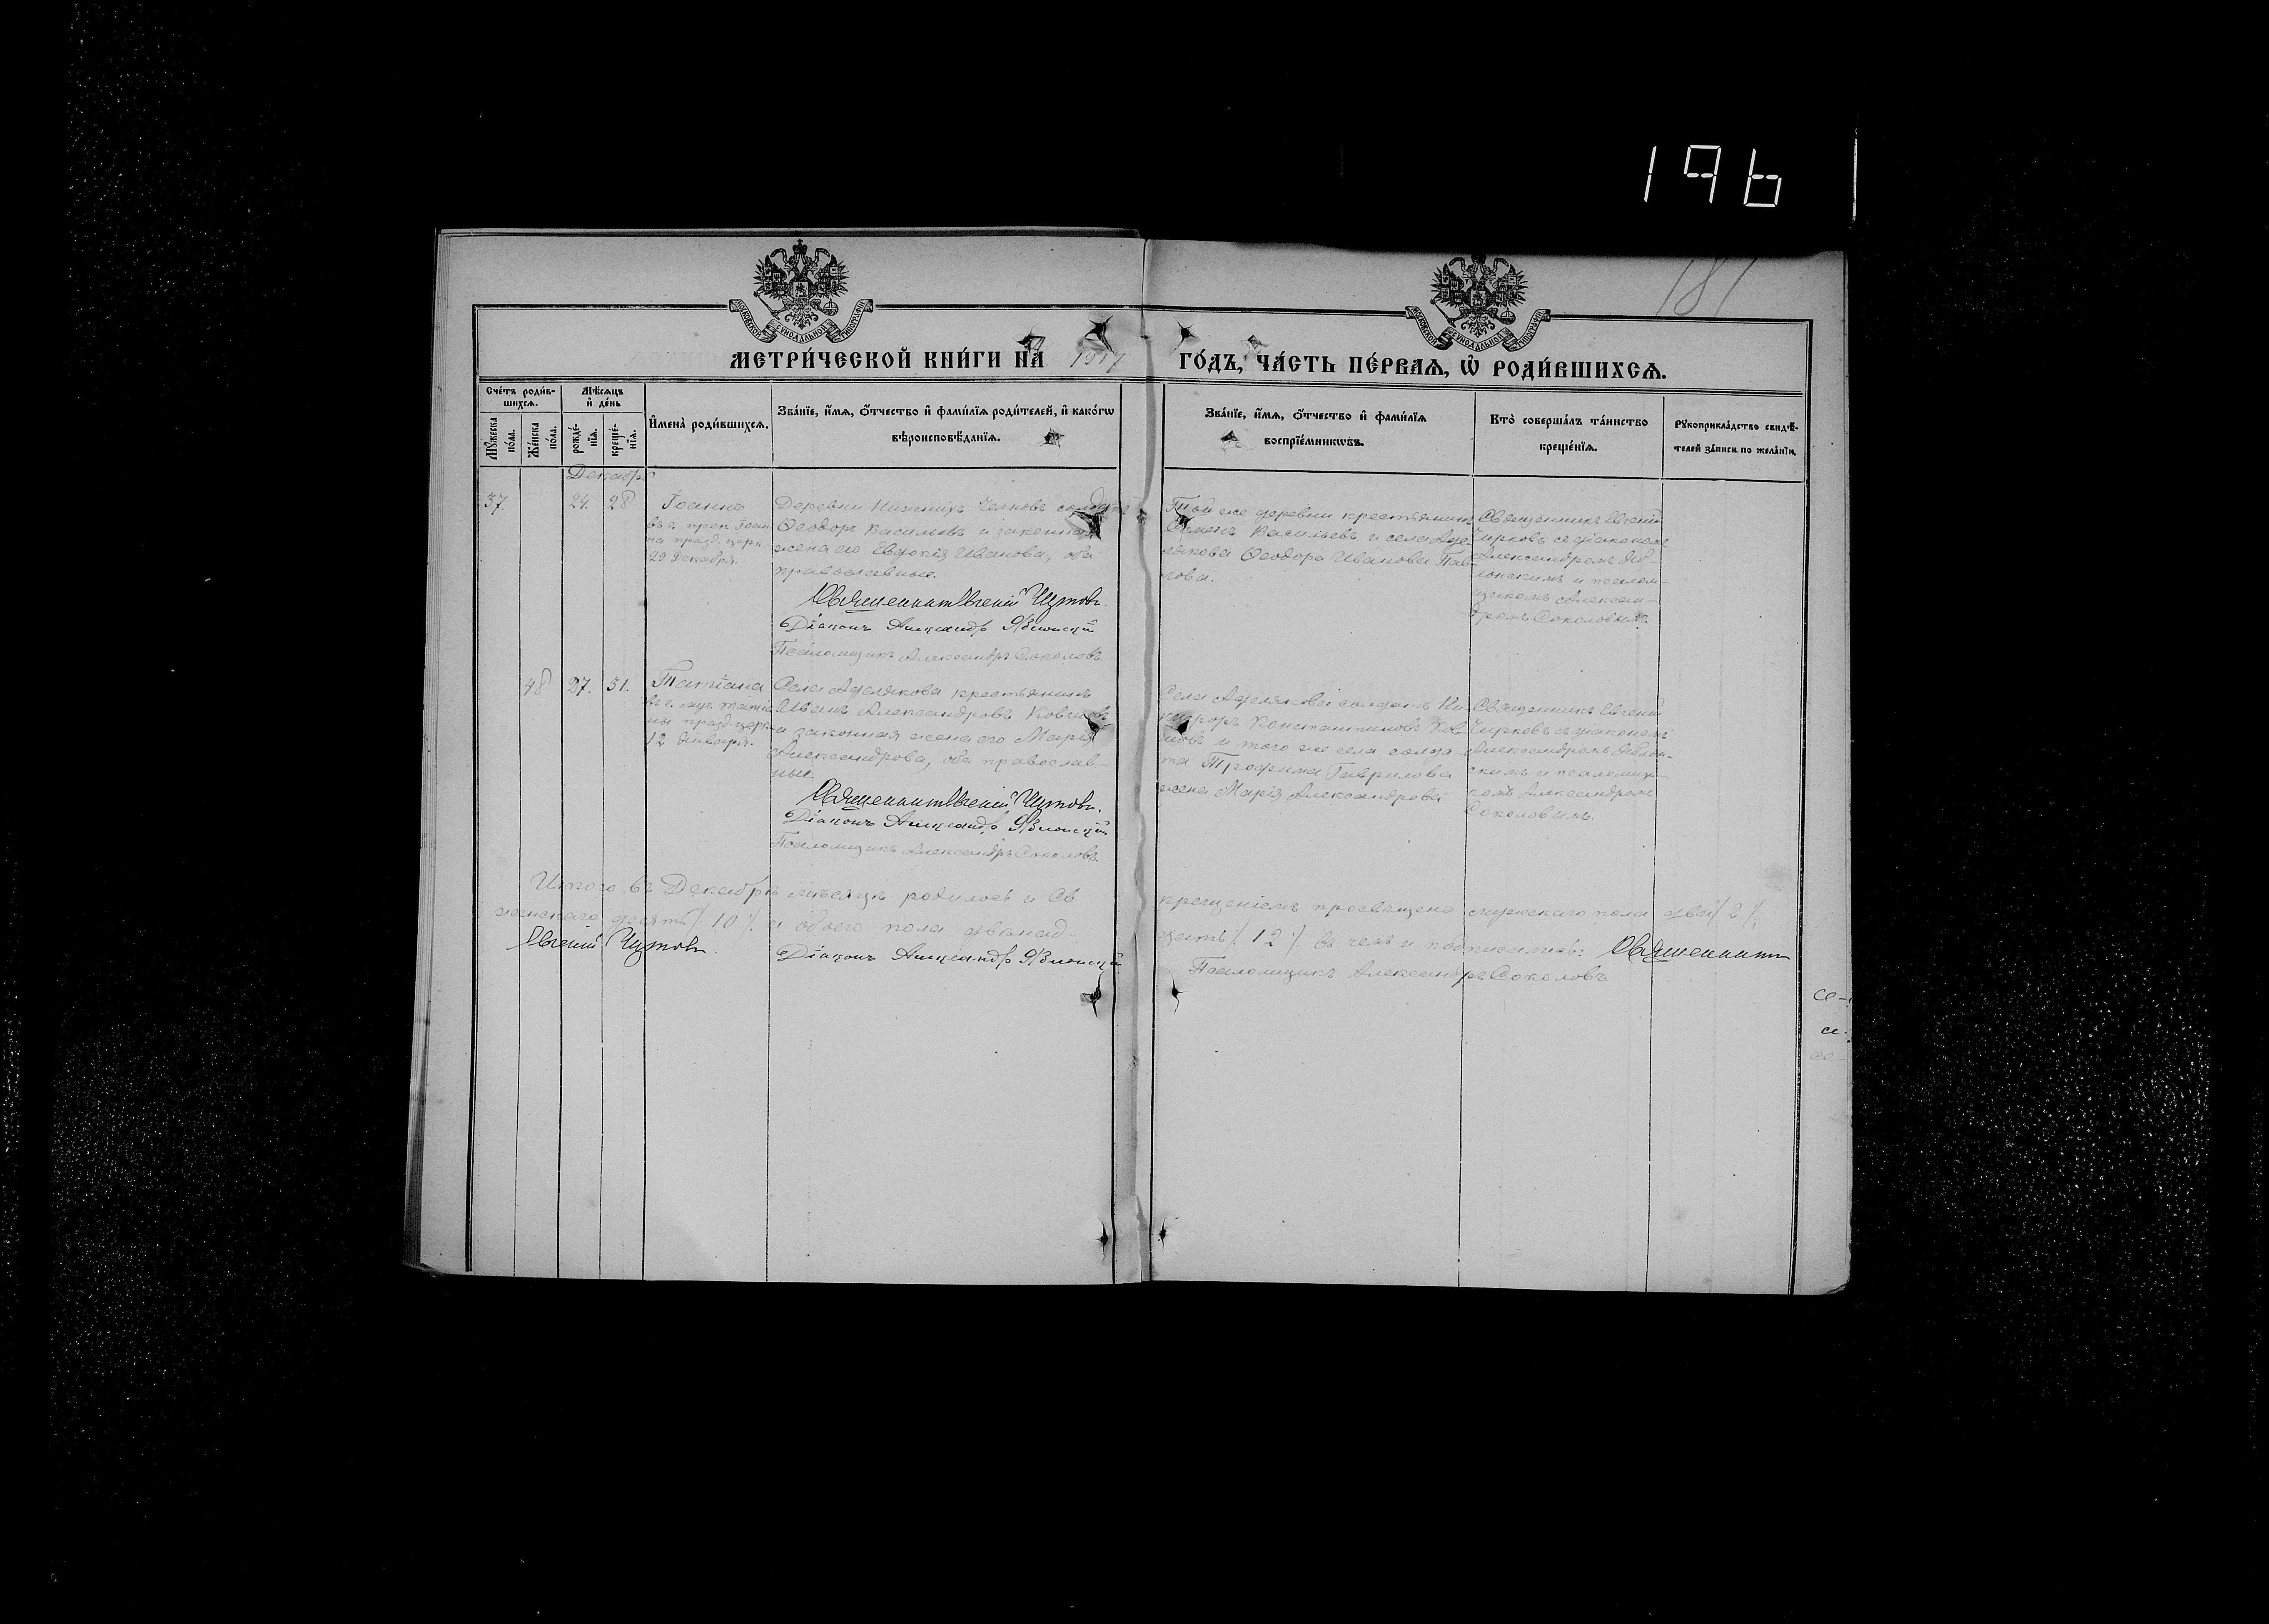 196
181
МОСКОВСКОЙ СѴНОДАЛЬНОЙ ТИПОГРАФІИ
МОСКОВСКОЙ СѴНОДАЛЬНОЙ ТИПОГРАФІИ
МЕТРИ́ЧЕСКОЙ КНИ́ГИ НА̀ 1917 ГО́ДЪ, ЧА́СТЬ ПЕ́РВАѦ, Ѡ҆ РОДИ́ВШИХСѦ.
Сче́тъ роди́в-
шихсѧ.
Мꙋ́жеска по́ла.
Же́нска по́ла.
Мѣ́сѧцъ и҆ де́нь
рожде́-нїѧ.
креще́-нїѧ.
И҆мена̀ роди́вшихсѧ.
Зва́нїе, и҆́мѧ, ѻ҆́тчество и҆ фами́лїѧ роди́телей, и҆ како́гѡ
вѣроисповѣ́данїѧ.
Зва́нїе, и҆́мѧ, ѻ҆́тчество и҆ фами́лїѧ
воспрїе́мникѡвъ.
Кто̀ соверша́лъ та́инство
креще́нїѧ.
Рꙋкоприкла́дство свидѣ́-
телей за́писи по жела́нїю.
Декабрь
37.
24. 28
Іоаннъ
въ ч. преп. Іоан
на празд. церк.
29 Декабря.
Деревни Нижнихъ солдатъ
Ѳеодоръ Васильевъ и законная
жена его Евдокія Иванова, оба
православные.
Священникъ Евгеній
Діаконъ Александръ Яблонскій
Псаломщикъ Александръ Соколовъ
Той же деревни крестьянинъ
Васильевъ и села Аде-
лякова Ѳеодора Иванова Пав-
лова.
Священникъ Евгеній
съ діакономъ
Александромъ Яб-
лонскимъ и псалом-
щикомъ Алексан-
дромъ Соколовымъ
48 27. 31.
Татіана
въ ч. муч. Татіа
ны празд. церк.
12 Января.
Села Аделякова крестьянинъ
Иванъ Александровъ
и законная жена его Марія
Александрова, оба православ-
ные.
Священникъ Евгеній
Діаконъ Александръ Яблонскій
Псаломщикъ Александръ Соколовъ.
Села Аделякова солдатъ Ни-
Константиновъ
и того же села солда-
та Трофима Гаврилова
жена Марія Александрова
Священникъ Евгеній
съ діакономъ
Александромъ Яблон-
скимъ и псаломщи-
комъ Александромъ
Соколовымъ.
Итого въ Декабрѣ мѣсяцѣ родилось и Св
крещеніемъ просвѣщено мужескаго пола два /2/,
женскаго десять /10/ и обоего пола двѣнад-
цать /12/ въ чемъ и подписались: Священникъ
Евгеній
Діаконъ Александръ Яблонскій
Псаломщикъ Александръ Соколовъ